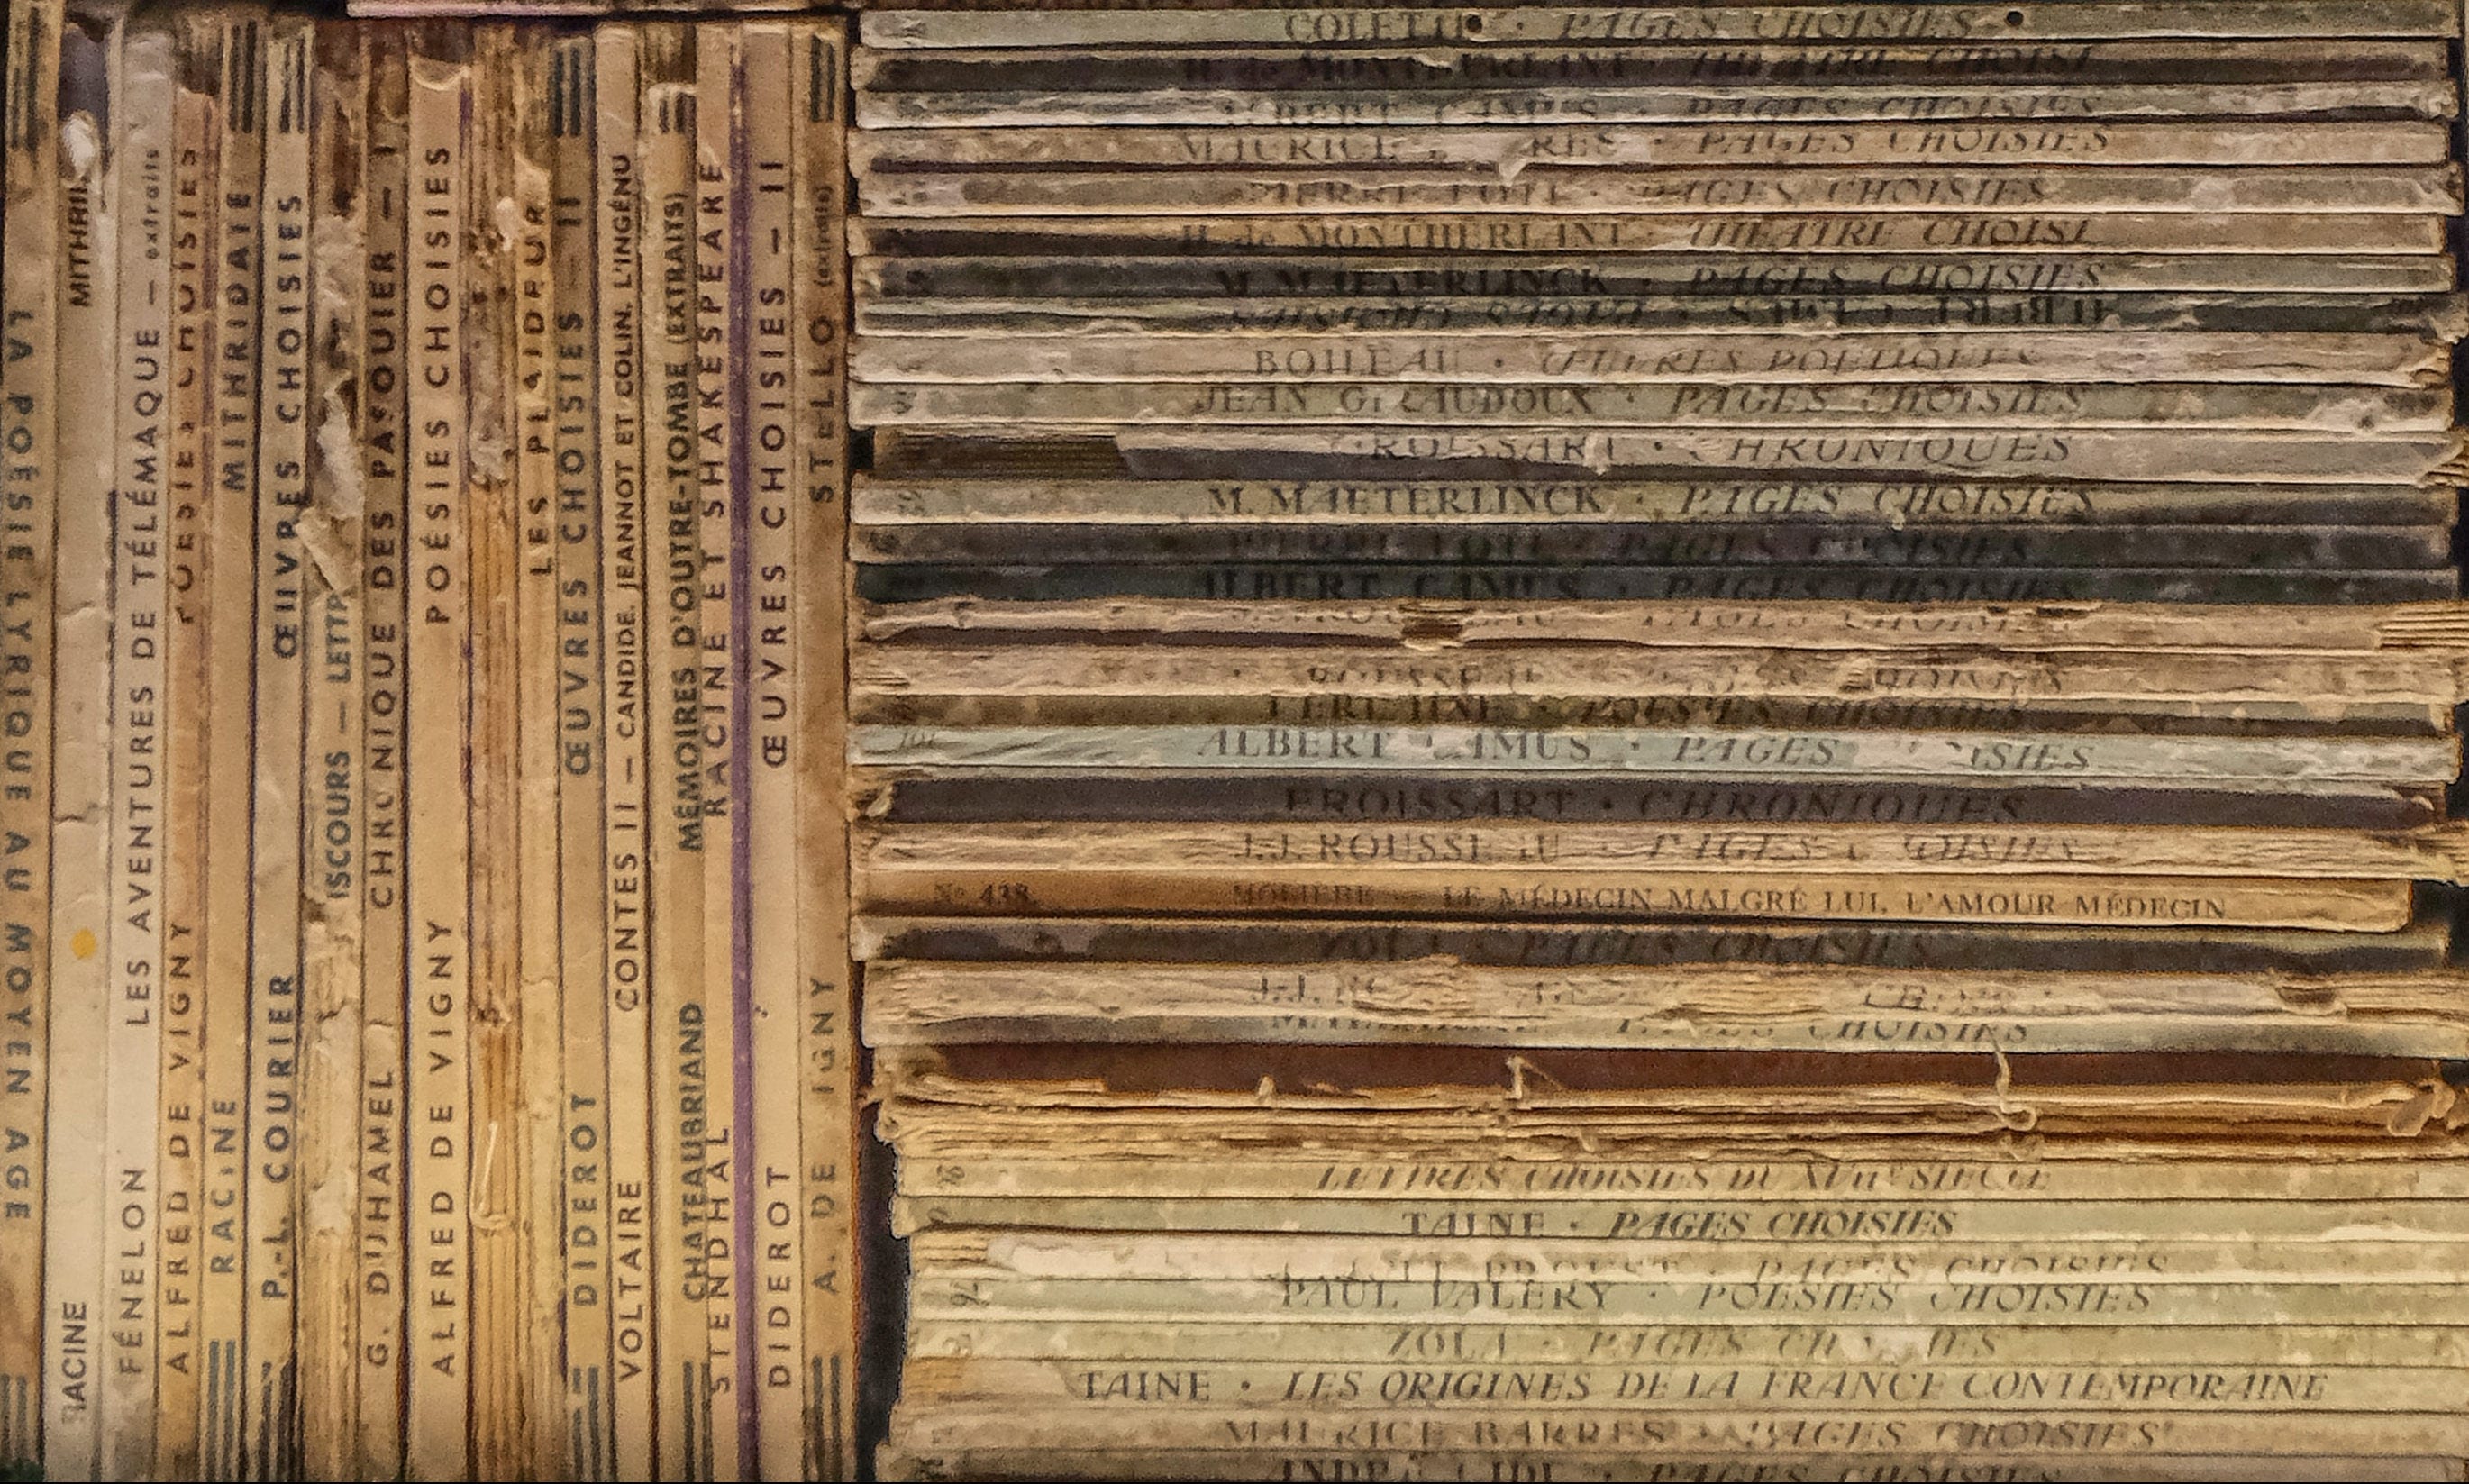 LA POÉSIE LYRIQUE AU MOYEN AGE
RACINE
FÉNELON LES AVENTURES DE TÉLÉMAQUE — extraits
ALFRED DE VIGNY POÉSIES CHOISIES
RACINE MITHRIDATE
P.-L. COURIER ŒUVRES CHOISIES
G. DUHAMEL CHRONIQUE DES PASQUIER — I
ALFRED DE VIGNY POÉSIES CHOISIES
LES PLAIDEUR
DIDEROT ŒUVRES CHOISIES — II
VOLTAIRE CONTES II — CANDIDE. JEANNOT ET COLIN. L'INGÉNU
CHATEAUBRIAND MÉMOIRES D'OUTRE-TOMBE (EXTRAITS)
STENDHAL RACINE ET SHAKESPEARE
DIDEROT ŒUVRES CHOISIES — II
A. DE VIGNY STELLO (extraits)
COLETTE · PAGES CHOISIES
H. de MONTHERLANT · THÉATRE CHOISI
ALBERT CAMUS · PAGES CHOISIES
MAURICE · PAGES CHOISIES
PIERRE LOTI · PAGES CHOISIES
H. de MONTHERLANT · THÉATRE CHOISI
M. MAETERLINCK · PAGES CHOISIES
ALBERT CAMUS · PAGES CHOISIES
BOILEAU · ŒUVRES POÉTIQUES
JEAN GIRAUDOUX · PAGES CHOISIES
FROISSART · CHRONIQUES
M. MAETERLINCK · PAGES CHOISIES
PIERRE LOTI · PAGES CHOISIES
ALBERT CAMUS · PAGES CHOISIES
J.-J. ROUSSEAU · PAGES CHOISIES
ROUSSEAU · PAGES CHOISIES
VERLAINE · POÉSIES CHOISIES
ALBERT CAMUS · PAGES CHOISIES
FROISSART · CHRONIQUES
J.-J. ROUSSEAU · PAGES CHOISIES
No 438. MOLIÈRE — LE MÉDECIN MALGRÉ LUI. L'AMOUR MÉDECIN
ZOLA · PAGES CHOISIES
J.-J. CHOISIES
PAGES CHOISIES
LETTRES CHOISIES DU XVIIe SIÈCLE
TAINE · PAGES CHOISIES
PROUST · PAGES CHOISIES
76 PAUL VALÉRY · POÉSIES CHOISIES
ZOLA · PAGES CHOISIES
TAINE · LES ORIGINES DE LA FRANCE CONTEMPORAINE
MAURICE BARRÈS · PAGES CHOISIES
ANDRÉ GIDE · PAGES CHOISIES